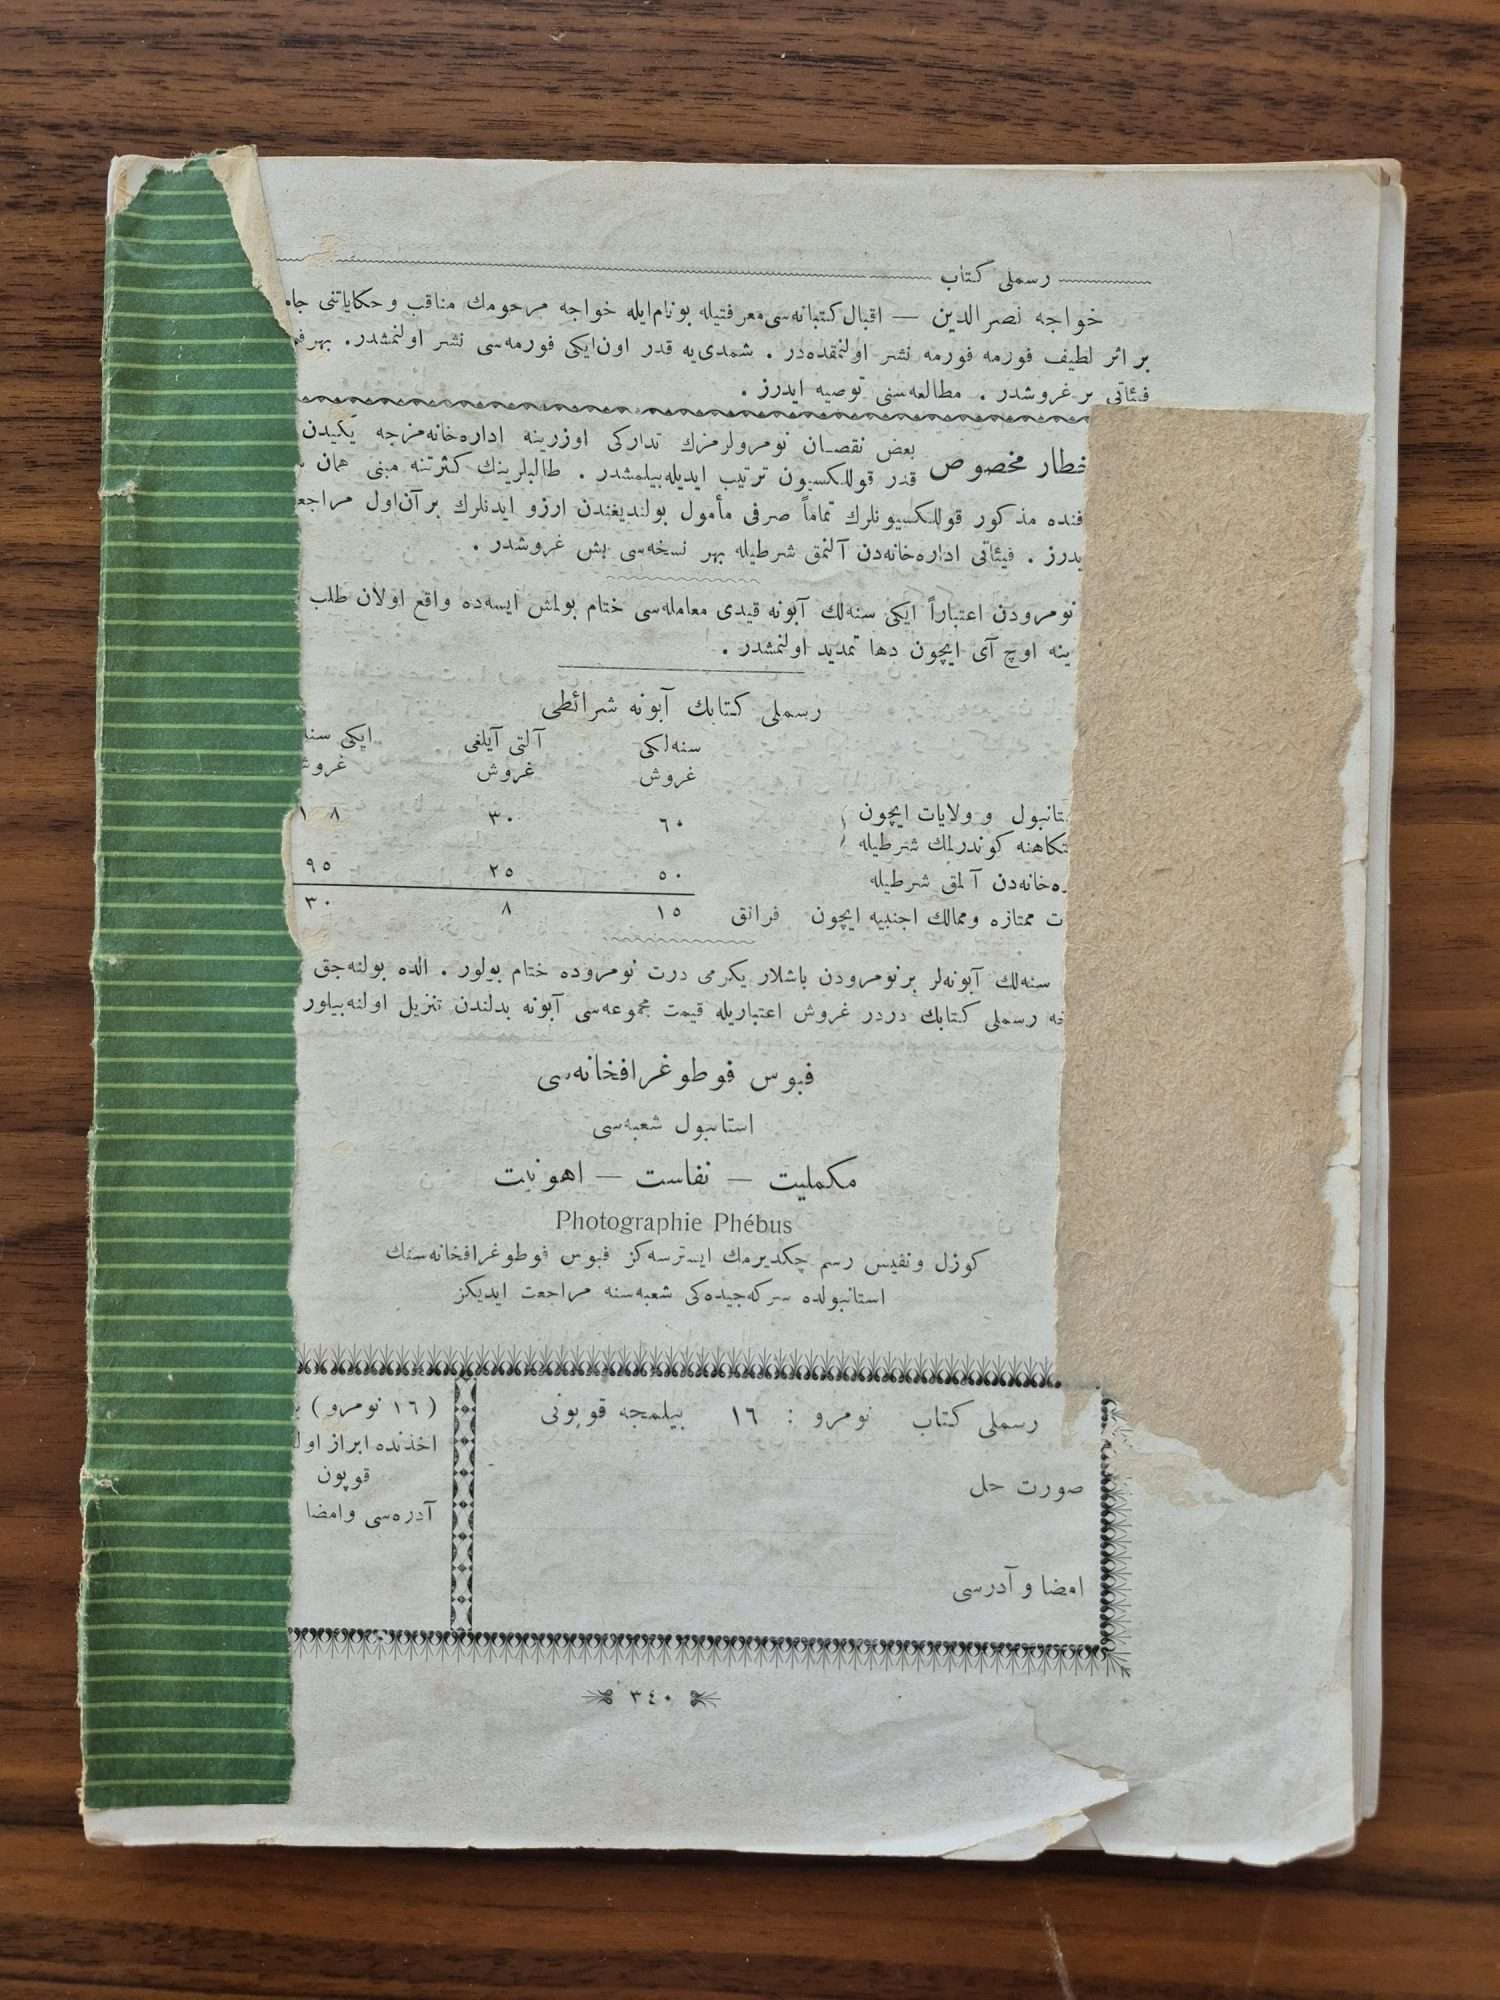 رسملی کتاب
خواجه نصرالدین — اقبال کتبخانه‌سی معرفتیله بونام ایله خواجه مرحومك مناقب وحکایاتنی
بر اثر لطیف فورمه فورمه نشر اولنمقده‌در . شمدی‌یه قدر اون‌ایکی فورمه‌سی نشر اولنمشدر.
فیئاتی بر غروشدر . مطالعه‌سنی توصیه ایدرز .
خطار مخصوص
بعض نقصان نومرولرمزك تدارکی اوزرینه اداره‌خانه‌مزجه یکیدن
قدر قوللکسیون ترتیب ایدیله‌بیلمشدر . طالبلرینك کثرتنه مبنی همان
فنده مذکور قوللکسیونلرك تماماً صرفی مأمول بولندیغندن آرزو ایدنلرك بر آن‌اول
یدرز . فیئاتی اداره‌خانه‌دن آلنمق شرطیله بهر نسخه‌سی بش غروشدر .
نومرودن اعتباراً ایکی سنه‌لك آبونه قیدی معامله‌سی ختام بولمش ایسه‌ده واقع اولان طلب
ینه اوچ آی ایچون دها تمدید اولنمشدر .
رسملی کتابك آبونه شرائطی
سنه‌لکی آلتی آیلغی ایکی
غروش غروش
تانبول و ولایات ایچون
تکاهنه کوندرلمك شرطیله
٦٠ ٣٠
ه‌خانه‌دن آلمق شرطیله ٥٠ ٢٥ ٩٥
ت ممتازه وممالك اجنبیه ایچون فرانق ١٥ ٨ ٣٠
سنه‌لك آبونه‌لر برنومرودن باشلار یکرمی درت نومروده ختام بولور . الده بولنه‌جق
رسملی کتابك دردر غروش اعتباریله قیمت مجموعه‌سی آبونه بدلندن تنزیل اولنه‌بیلور
فبوس فوطوغرافخانه‌سی
استانبول شعبه‌سی
مکملیت — نفاست — اهونیت
Photographie Phébus
کوزل ونفیس رسم چکدیرمك ایسترسه‌کز فبوس فوطوغرافخانه‌سنك
استانبولده سرکه‌جیده‌کی شعبه‌سنه مراجعت ایدیکز
رسملی کتاب نومرو : ١٦ بیلمجه قوپونی
صورت حل
امضا و آدرسی
(١٦ نومرو)
اخذنده ابراز
قوپون
آدره‌سی وامضا
٣٤٠